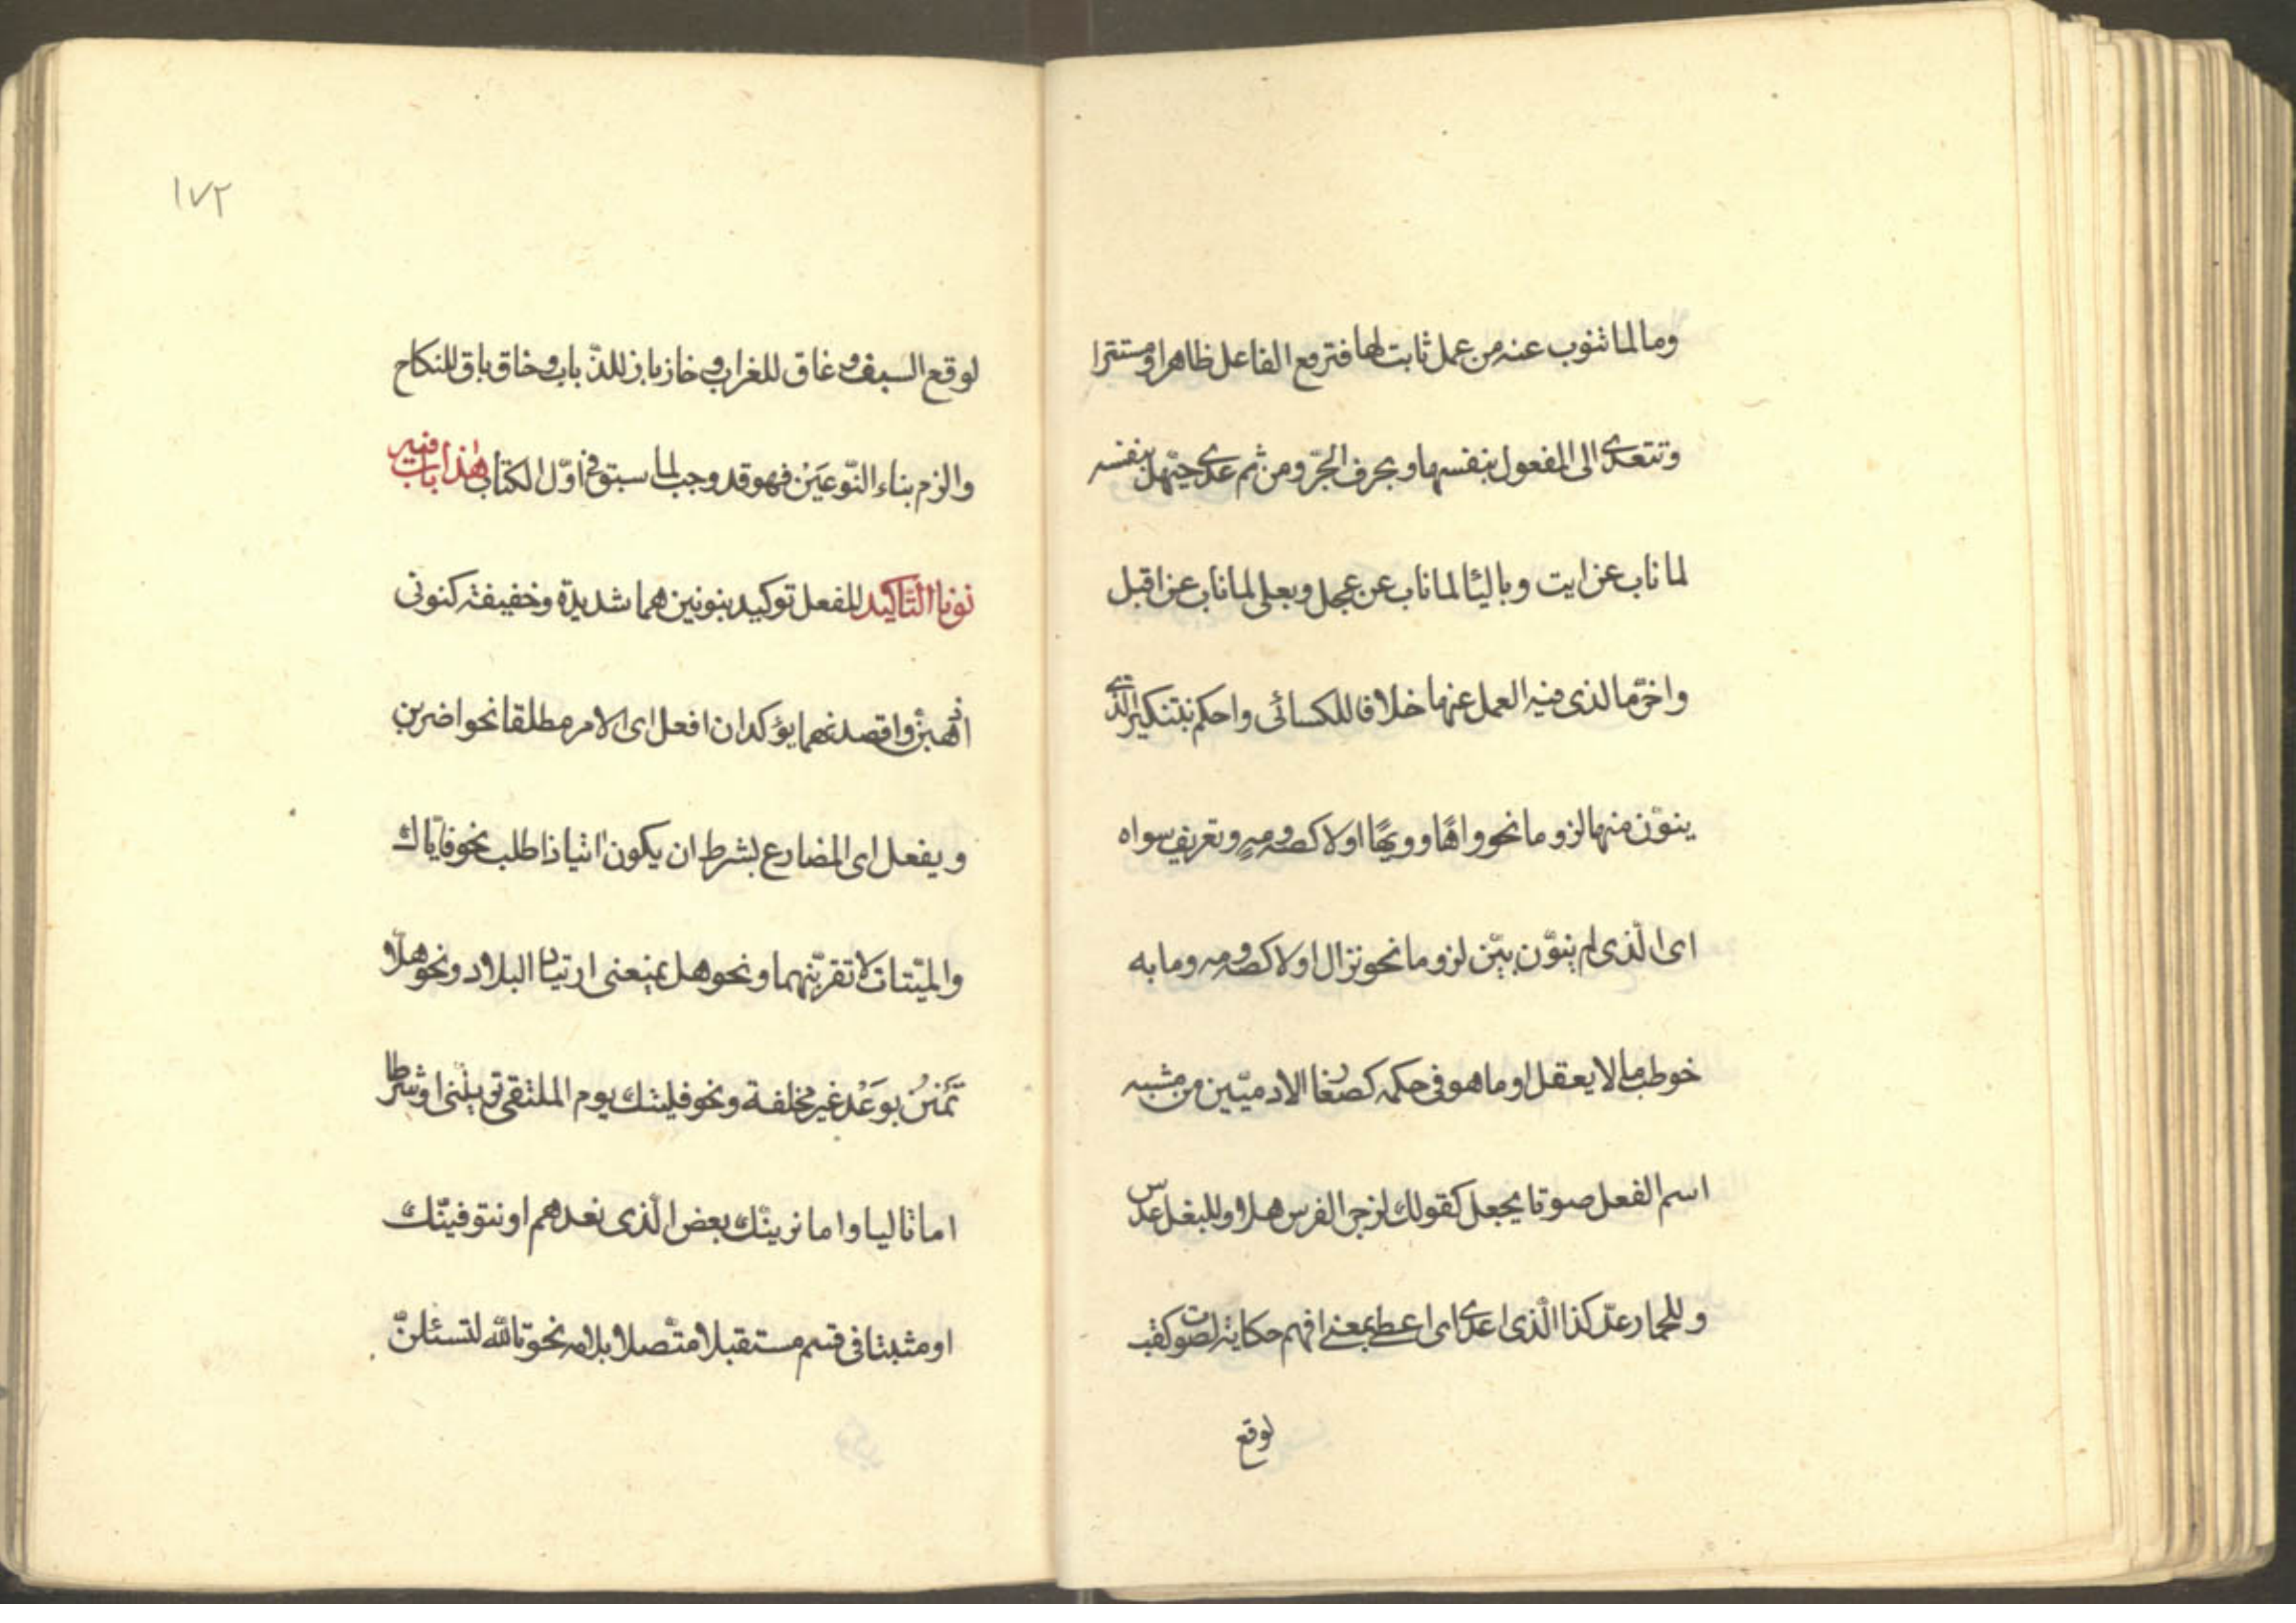 وما لما تنوب عنه من عمل ثابت لها فترفع الفاعل ظاهرا ومستترا
وتتعدى الى المفعول بنفسها وبحرف الجرّ ومن ثم عدى حيّهل بنفسه
لما ناب عن ايت وبالبا لما ناب عن عجل وبعلى لما ناب عن اقبل
واخّر ما لذى فيه العمل عنها خلافا للكسائى واحكم بتنكير الّذى
ينوّن منها لزوما نحو واهًا وويهًا اولا كصه ومهٍ وتعريف سواه
اى الّذى لم ينوّن بيّن لزوما نحو نزال اولا كصه ومه وما به
خوطب ما لا يعقل او ما هو فى حكمه كصغار الادميّين من مشبه
اسم الفعل صوتا يجعل كقولك لزجر الفرس هلا وللبغل عدس
وللحمار عدّ كذا الّذى اجدى اى اعطى بمعنى افهم حكاية لصوت كقب
لوقع
١٧٢
لوقع السيف وغاق للغراب وخازباز للذّباب وخاق باق للنكاح
والزم بناء النّوعَيْن فهو قد وجب لما سبق فى اوّل الكتاب هٰذا باب فيه
نونا التّاكيد للفعل توكيد بنونين هما شديدة وخفيفة كنونى
اذهبنّ واقصدنهما يؤكدان افعل اى الامر مطلقا نحو اضربن
ويفعل اى المضارع بشرط ان يكون اتيا ذا طلب نحو فايّاك
والميّتات لا تقربنّهما ونحو هل يمنعنى ارتياد البلاد ونحو هلّا
تمنّنْ بوَعْد غير مخلفة ونحو فليتك يوم الملتقى ترينّنى او شرطا
امّا تاليا واما نرينّك بعض الّذى نعدهم او نتوفينّك
او مثبتا فى قسم مستقبلا متّصلا بلامه نحو تاللّه لتسئلنّ